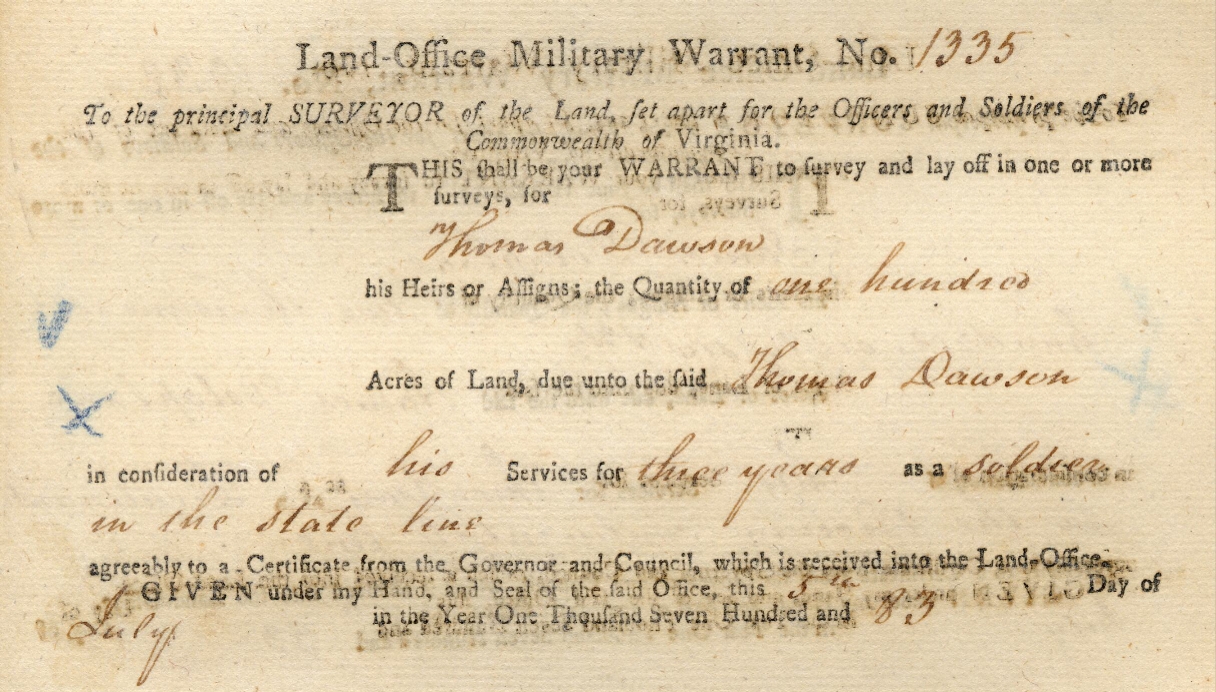 Land-Office Military Warrant, No. 1335
To the principal SURVEYOR of the Land, ſet apart for the Officers and Soldiers of the
Commonwealth of Virginia.
THIS ſhall be your WARRANT to ſurvey and lay off in one or more
ſurveys, for
Thomas Dawson
his Heirs or Aſſigns; the Quantity of one hundred
Acres of Land, due unto the ſaid Thomas Dawson
in conſideration of his Services for three years as a soldier
in the state line
agreeably to a Certificate from the Governor and Council, which is received into the Land-Office.
GIVEN under my Hand, and Seal of the ſaid Office, this 5th Day of
July in the Year One Thouſand Seven Hundred and 83